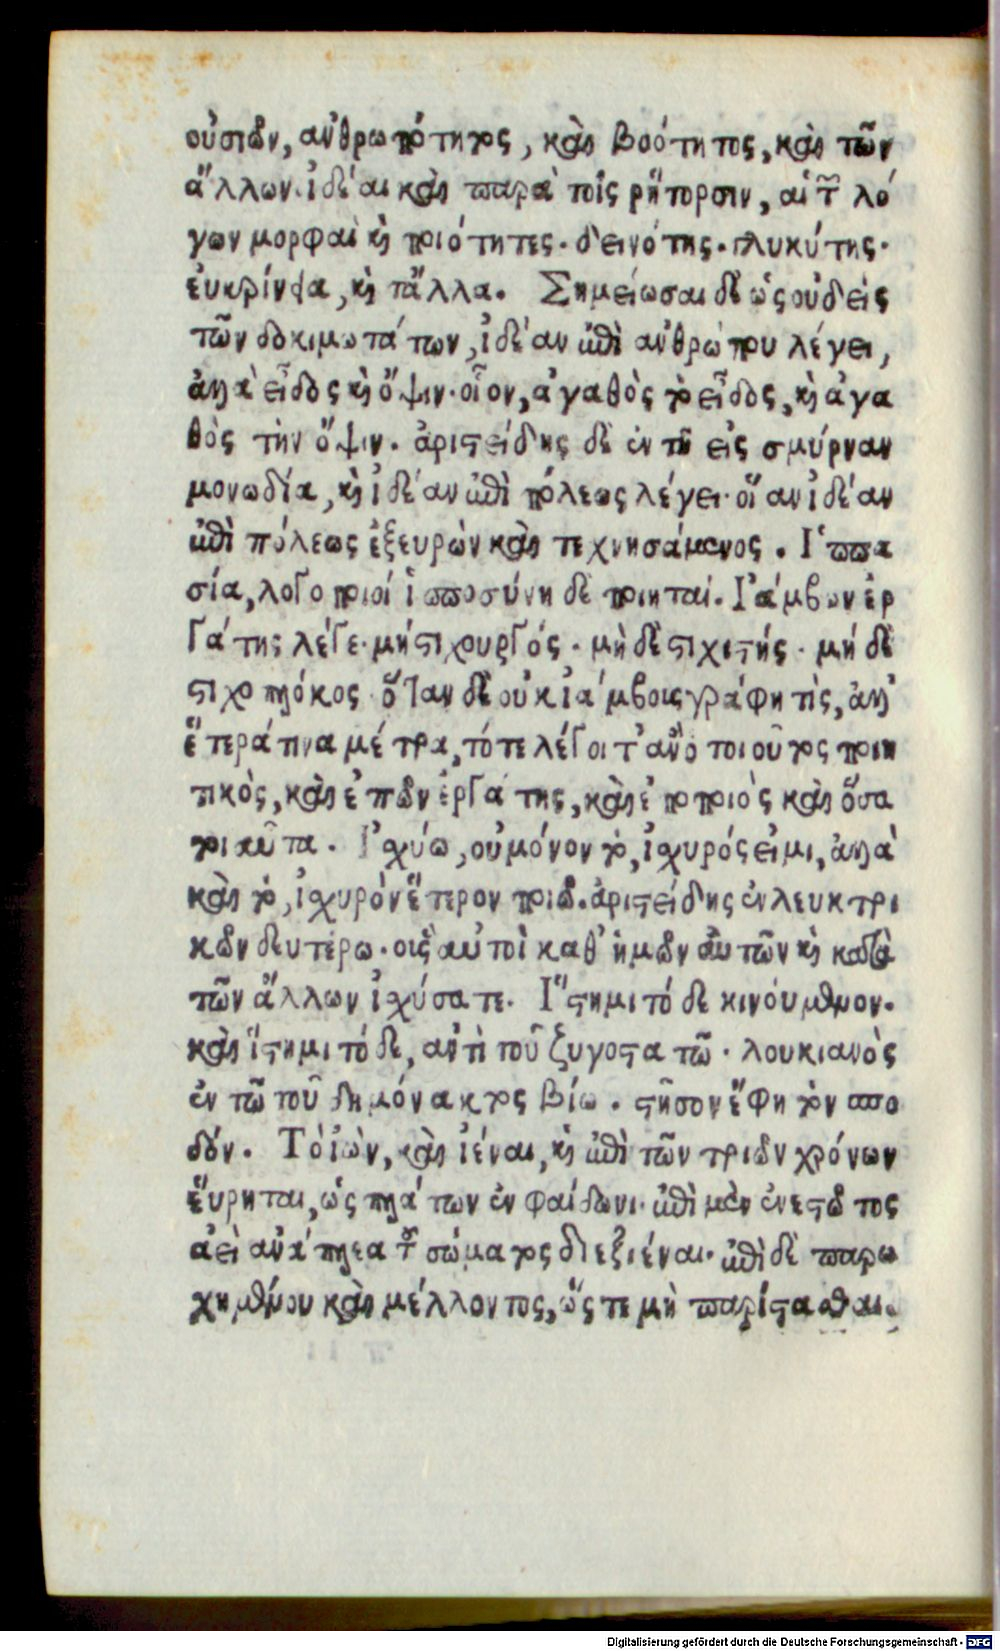 οὐσιῶν, ἀνθρωπότητος, καὶ βοότητος, καὶ τῶν
ἄλλων. ἰδέαι καὶ παρὰ τοῖς ῥήτορσιν, αἱ τῶν λό
γων μορφαὶ καὶ ποιότητες. δεινότης. γλυκύτης.
ἐυκρίνεια, καὶ τἄλλα. Σημείωσαι δὲ ὡς οὐδεὶς
τῶν δοκιμωτάτων, ἰδέαν ἐπὶ ἀνθρώπου λέγει,
ἀλλὰ εἶδος καὶ ὄψιν. οἷον, ἀγαθὸς τὸ εἶδος, καὶ ἀγα
θὸς τὴν ὄψιν. ἀριστείδης δὲ ἐν τῇ εἰς σμύρναν
μονωδία, καὶ ἰδέαν ἐπὶ πόλεως λέγει. οἵαν ἰδέαν
ἐπὶ πόλεως ἐξευρὼν καὶ τεχνησάμενος. Ἱππα
σία, λογοποιοί ἱπποσύνη δὲ ποιηταί. Ἰάμβων ἐρ
γάτης λέγε. μὴ στιχουργός. μὴ δὲ στιχιστής. μὴ δὲ
στιχοπλόκος. ὅταν δὲ οὐκ ἰάμβοις γράφη τὶς, ἀλλ'
ἕτερά τινα μέτρα, τότε λέγοιτ' ἂν ὁ τοιοῦτος ποιη
τικὸς, καὶ ἐπῶν ἐργάτης, καὶ ἐποποιὸς καὶ ὅσα
τοιαῦτα. Ἰσχύω, οὐ μόνον τὸ, ἰσχυρός εἰμι, ἀλλὰ
καὶ τὸ, ἰσχυρὸν ἕτερον ποιῶ. ἀριστείδης ἐν λευκτρι
κῶν δευτέρω. οις αὐτοὶ καθ' ἡμῶν αὐτῶν καὶ κατὰ
τῶν ἄλλων ἰσχύσατε. Ἵστημι τό δε κινούμενον.
καὶ ἵστημι τό δε, ἀντὶ τοῦ ζυγοστατῶ. λουκιανὸς
ἐν τῶ τοῦ δημόνακτος βίω. στῆσον ἔφη τὸν ἀπο
δόν. Τὸ ἰὼν, καὶ ἰέναι, καὶ ἐπὶ τῶν τριῶν χρόνων
ἕυρηται, ὡς πλάτων ἐν φαίδωνι. ἐπὶ μὲν ἐνεστῶτος
ἀεὶ ἀνάπλεα τοῦ σώματος διεξιέναι. ἐπὶ δὲ παρω
χημένου καὶ μέλλοντος, ὥς τε μὴ παρίστασθαι.
Digitalisierung gefördert durch die Deutsche Forschungsgemeinschaft - DFG